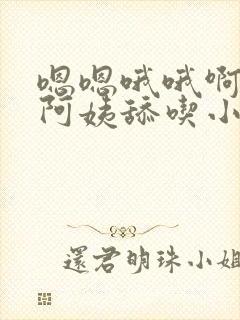 嗯嗯哦哦啊
阿姨舔喫小
還君明珠小姐